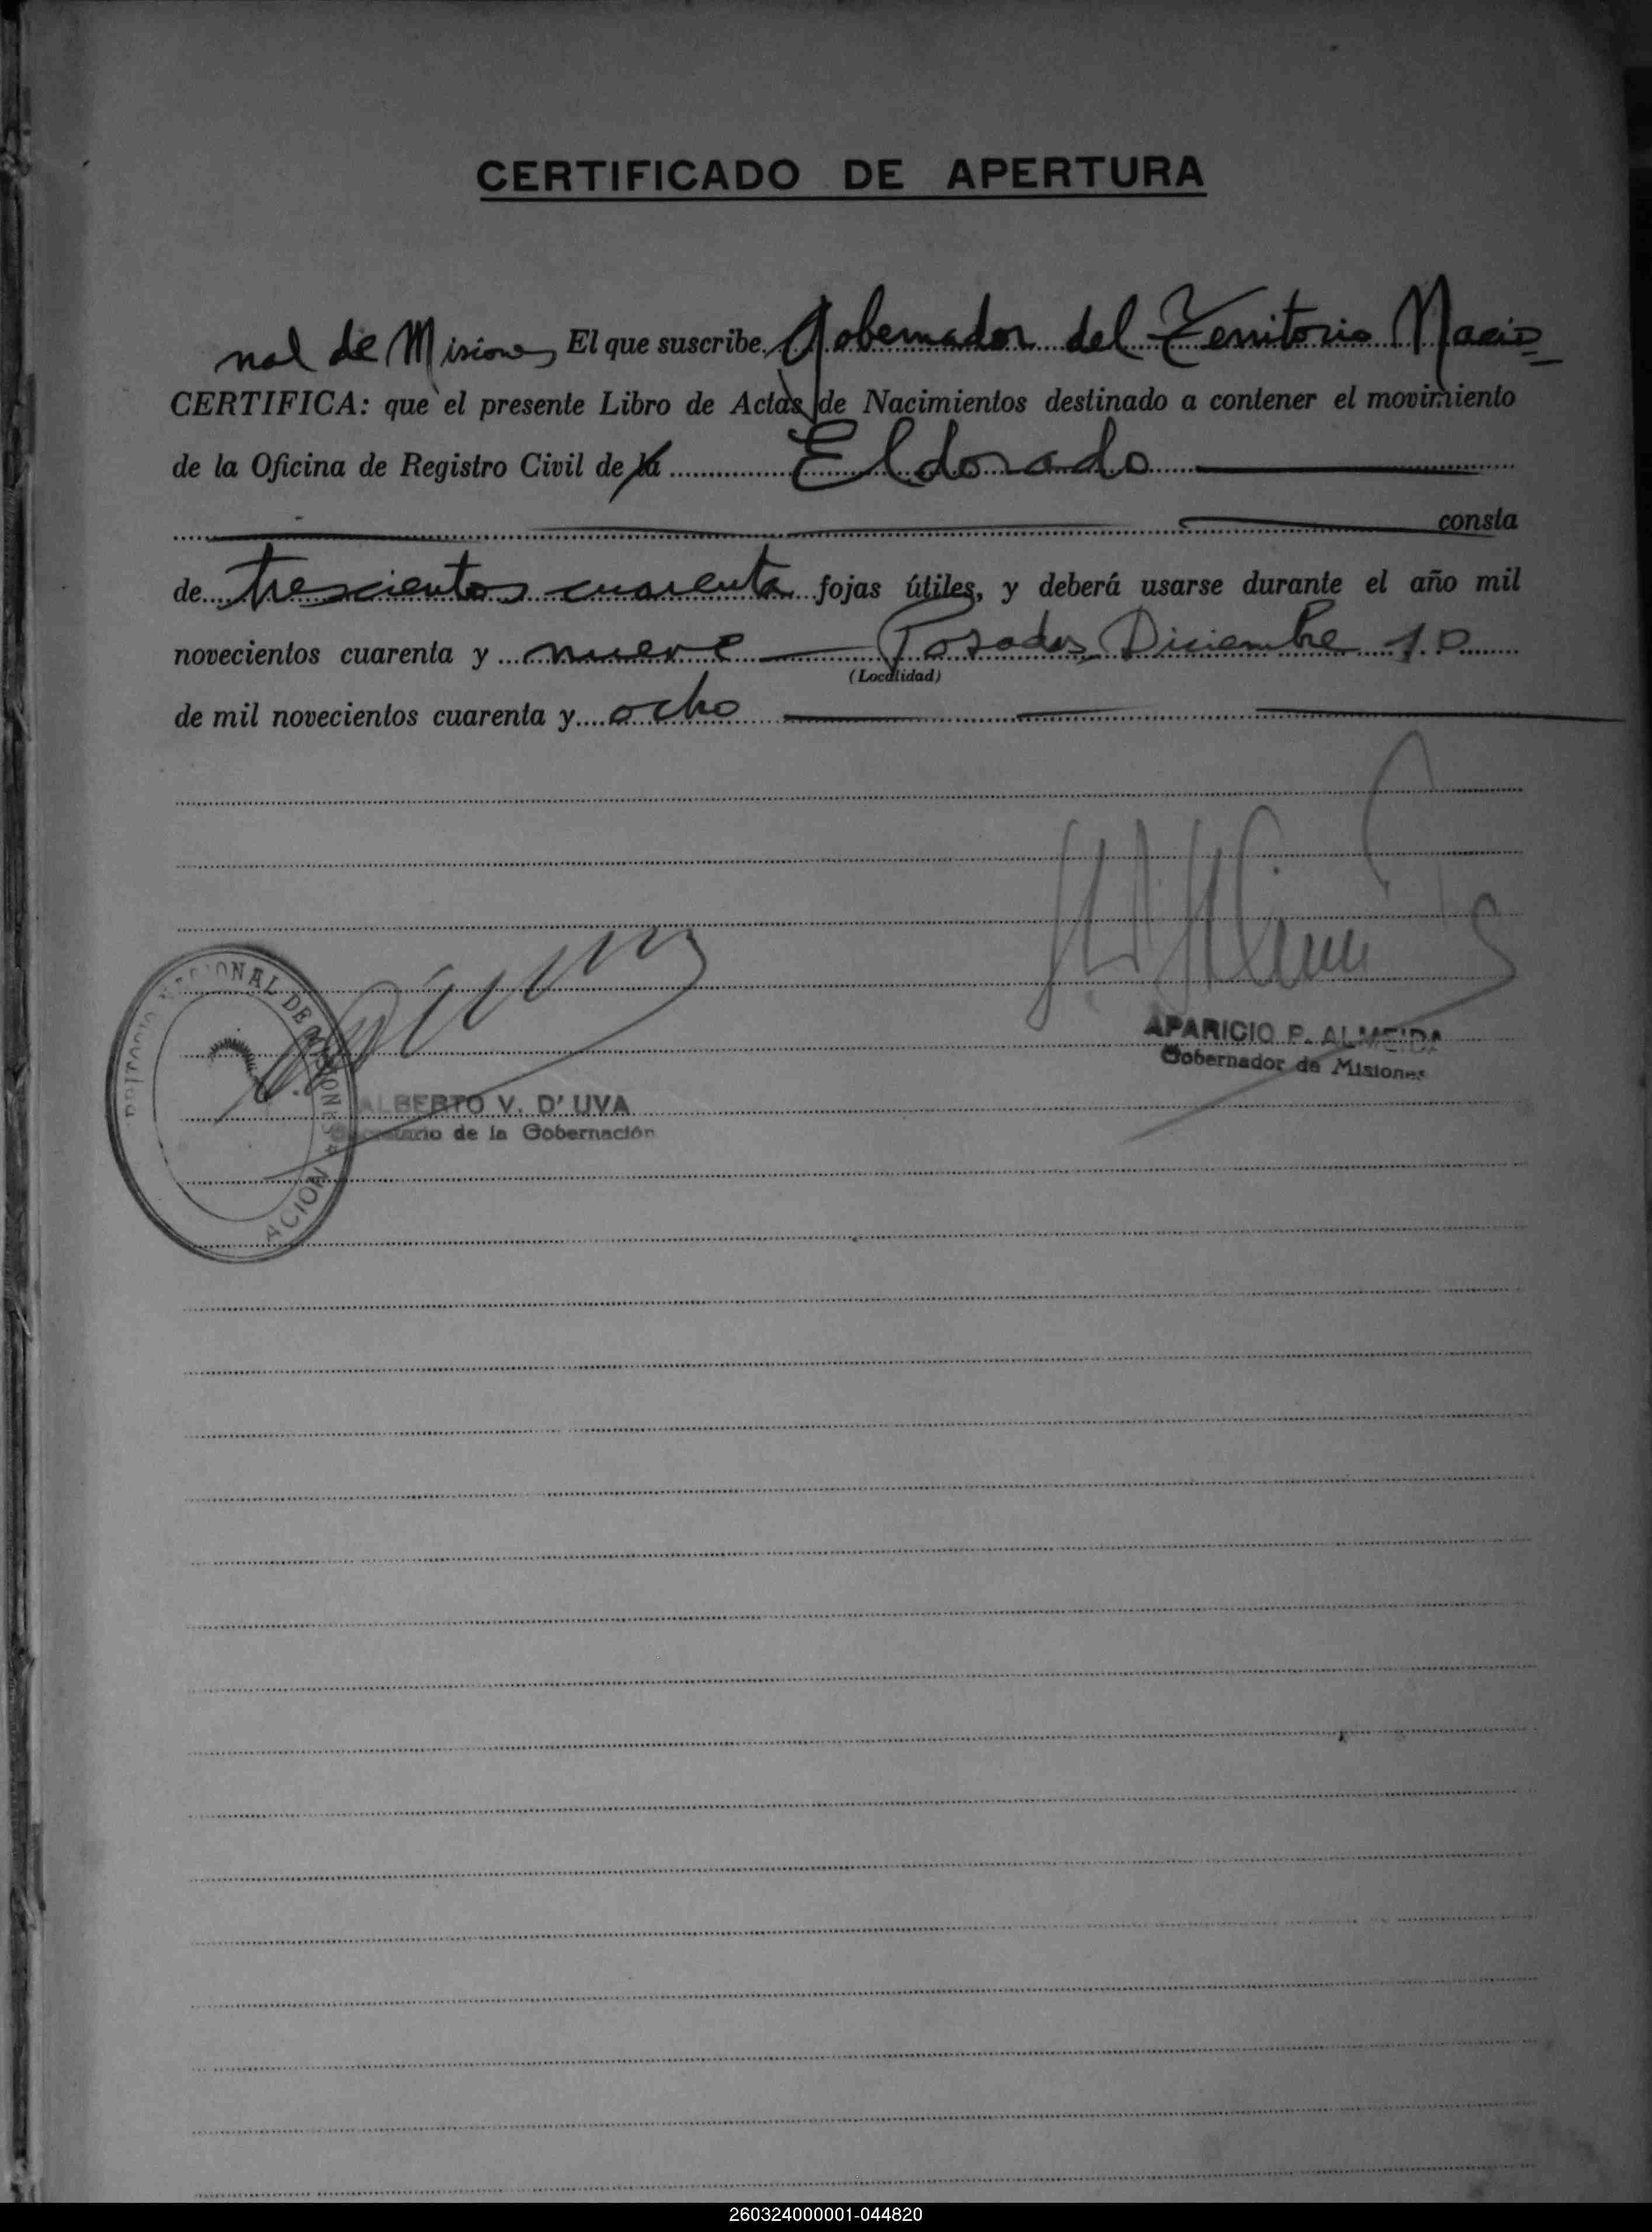 CERTIFICADO DE APERTURA
El que suscribe Gobernador del Territorio Nacio=
nal de Misiones
CERTIFICA: que el presente Libro de Actas de Nacimientos destinado a contener el movimiento
de la Oficina de Registro Civil de la Eldorado
consta
de trescientos cuarenta fojas útiles, y deberá usarse durante el año mil
novecientos cuarenta y nueve Posadas, Diciembre 10
(Localidad)
de mil novecientos cuarenta y ocho
APARICIO P. ALMEIDA
Gobernador de Misiones
ALBERTO V. D'UVA
Secretario de la Gobernación
260324000001-044820